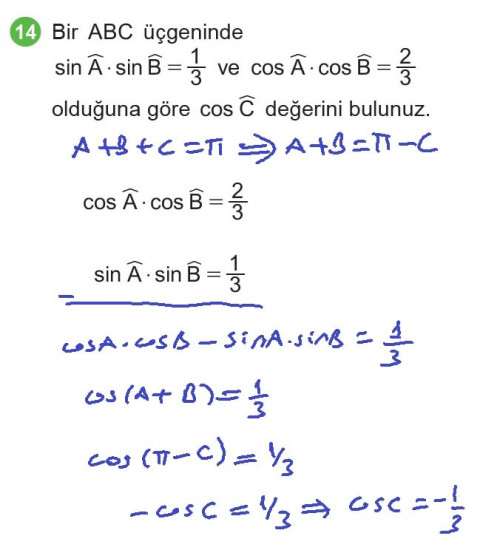 14 Bir ABC üçgeninde
sin Â · sin B̂ = 1/3 ve cos Â · cos B̂ = 2/3
olduğuna göre cos Ĉ değerini bulunuz.
A+B+C=π ⇒ A+B=π-C
cos Â · cos B̂ = 2/3
sin Â · sin B̂ = 1/3
-
cosA·cosB - sinA·sinB = 1/3
cos(A+B) = 1/3
cos(π-C) = 1/3
-cosC = 1/3 ⇒ cosc = -1/3